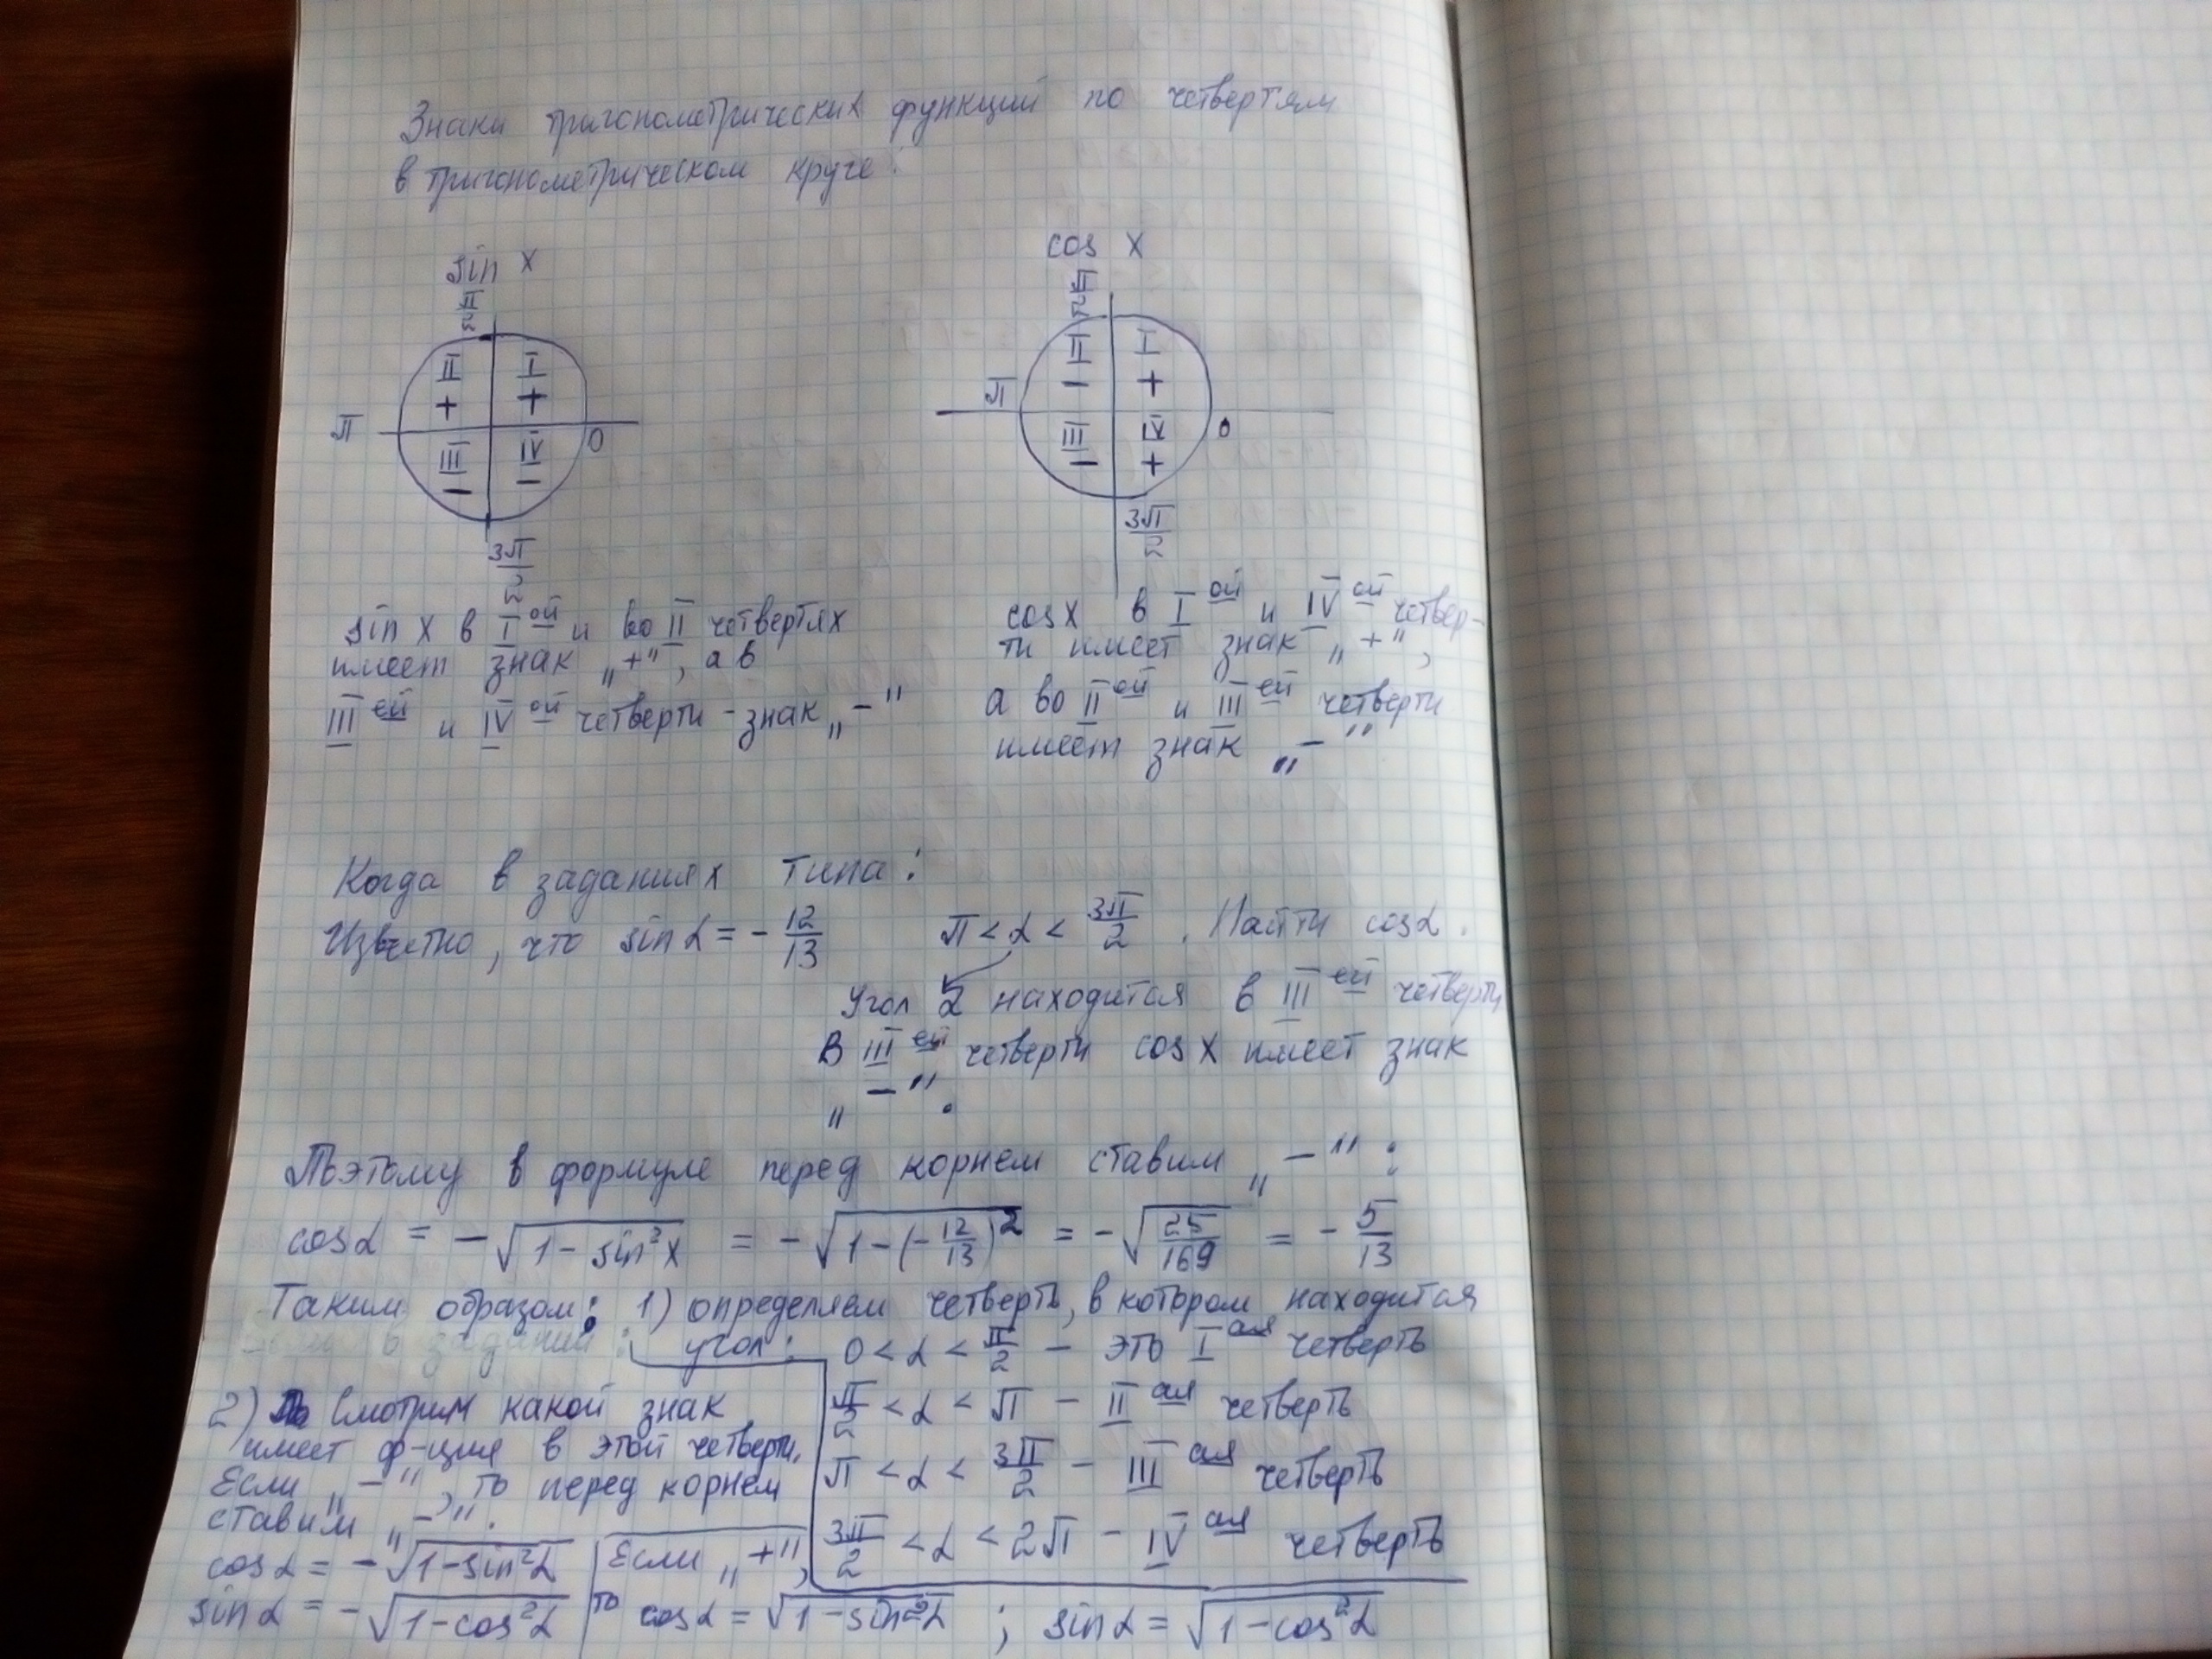 Знаки тригонометрических функций по четвертям
в тригонометрическом круге:
sin x
π/2
II I
+ +
π
0
III IV
− −
3π/2
cos x
π/2
II I
− +
π
0
III IV
− +
3π/2
sin x в I ой и во II четвертях
имеет знак „+“, а в
III ей и IV ой четверти - знак „−“
cos x в I ой и IV ой четвер-
ти имеет знак „+“,
а во II ой и III ей четверти
имеет знак „−“
Когда в заданиях типа:
Известно, что sin α = − 12/13 π < α < 3π/2. Найти cos α.
Угол α находится в III ей четверти
В III ей четверти cos x имеет знак
„−“.
Поэтому в формуле перед корнем ставим „−“:
cos α = −√(1 − sin² x) = −√(1 − (−12/13)²) = −√(25/169) = − 5/13
Таким образом: 1) определяем четверть, в котором находится
угол: 0 < α < π/2 − это I ая четверть
π/2 < α < π − II ая четверть
π < α < 3π/2 − III ая четверть
3π/2 < α < 2π − IV ая четверть
2) Смотрим какой знак
имеет ф-ция в этой четверти.
Если „−“, то перед корнем
ставим „−“.
cos α = −√(1−sin² α)
sin α = −√(1−cos² α)
Если „+“,
то cos α = √(1−sin² α) ; sin α = √(1−cos² α)